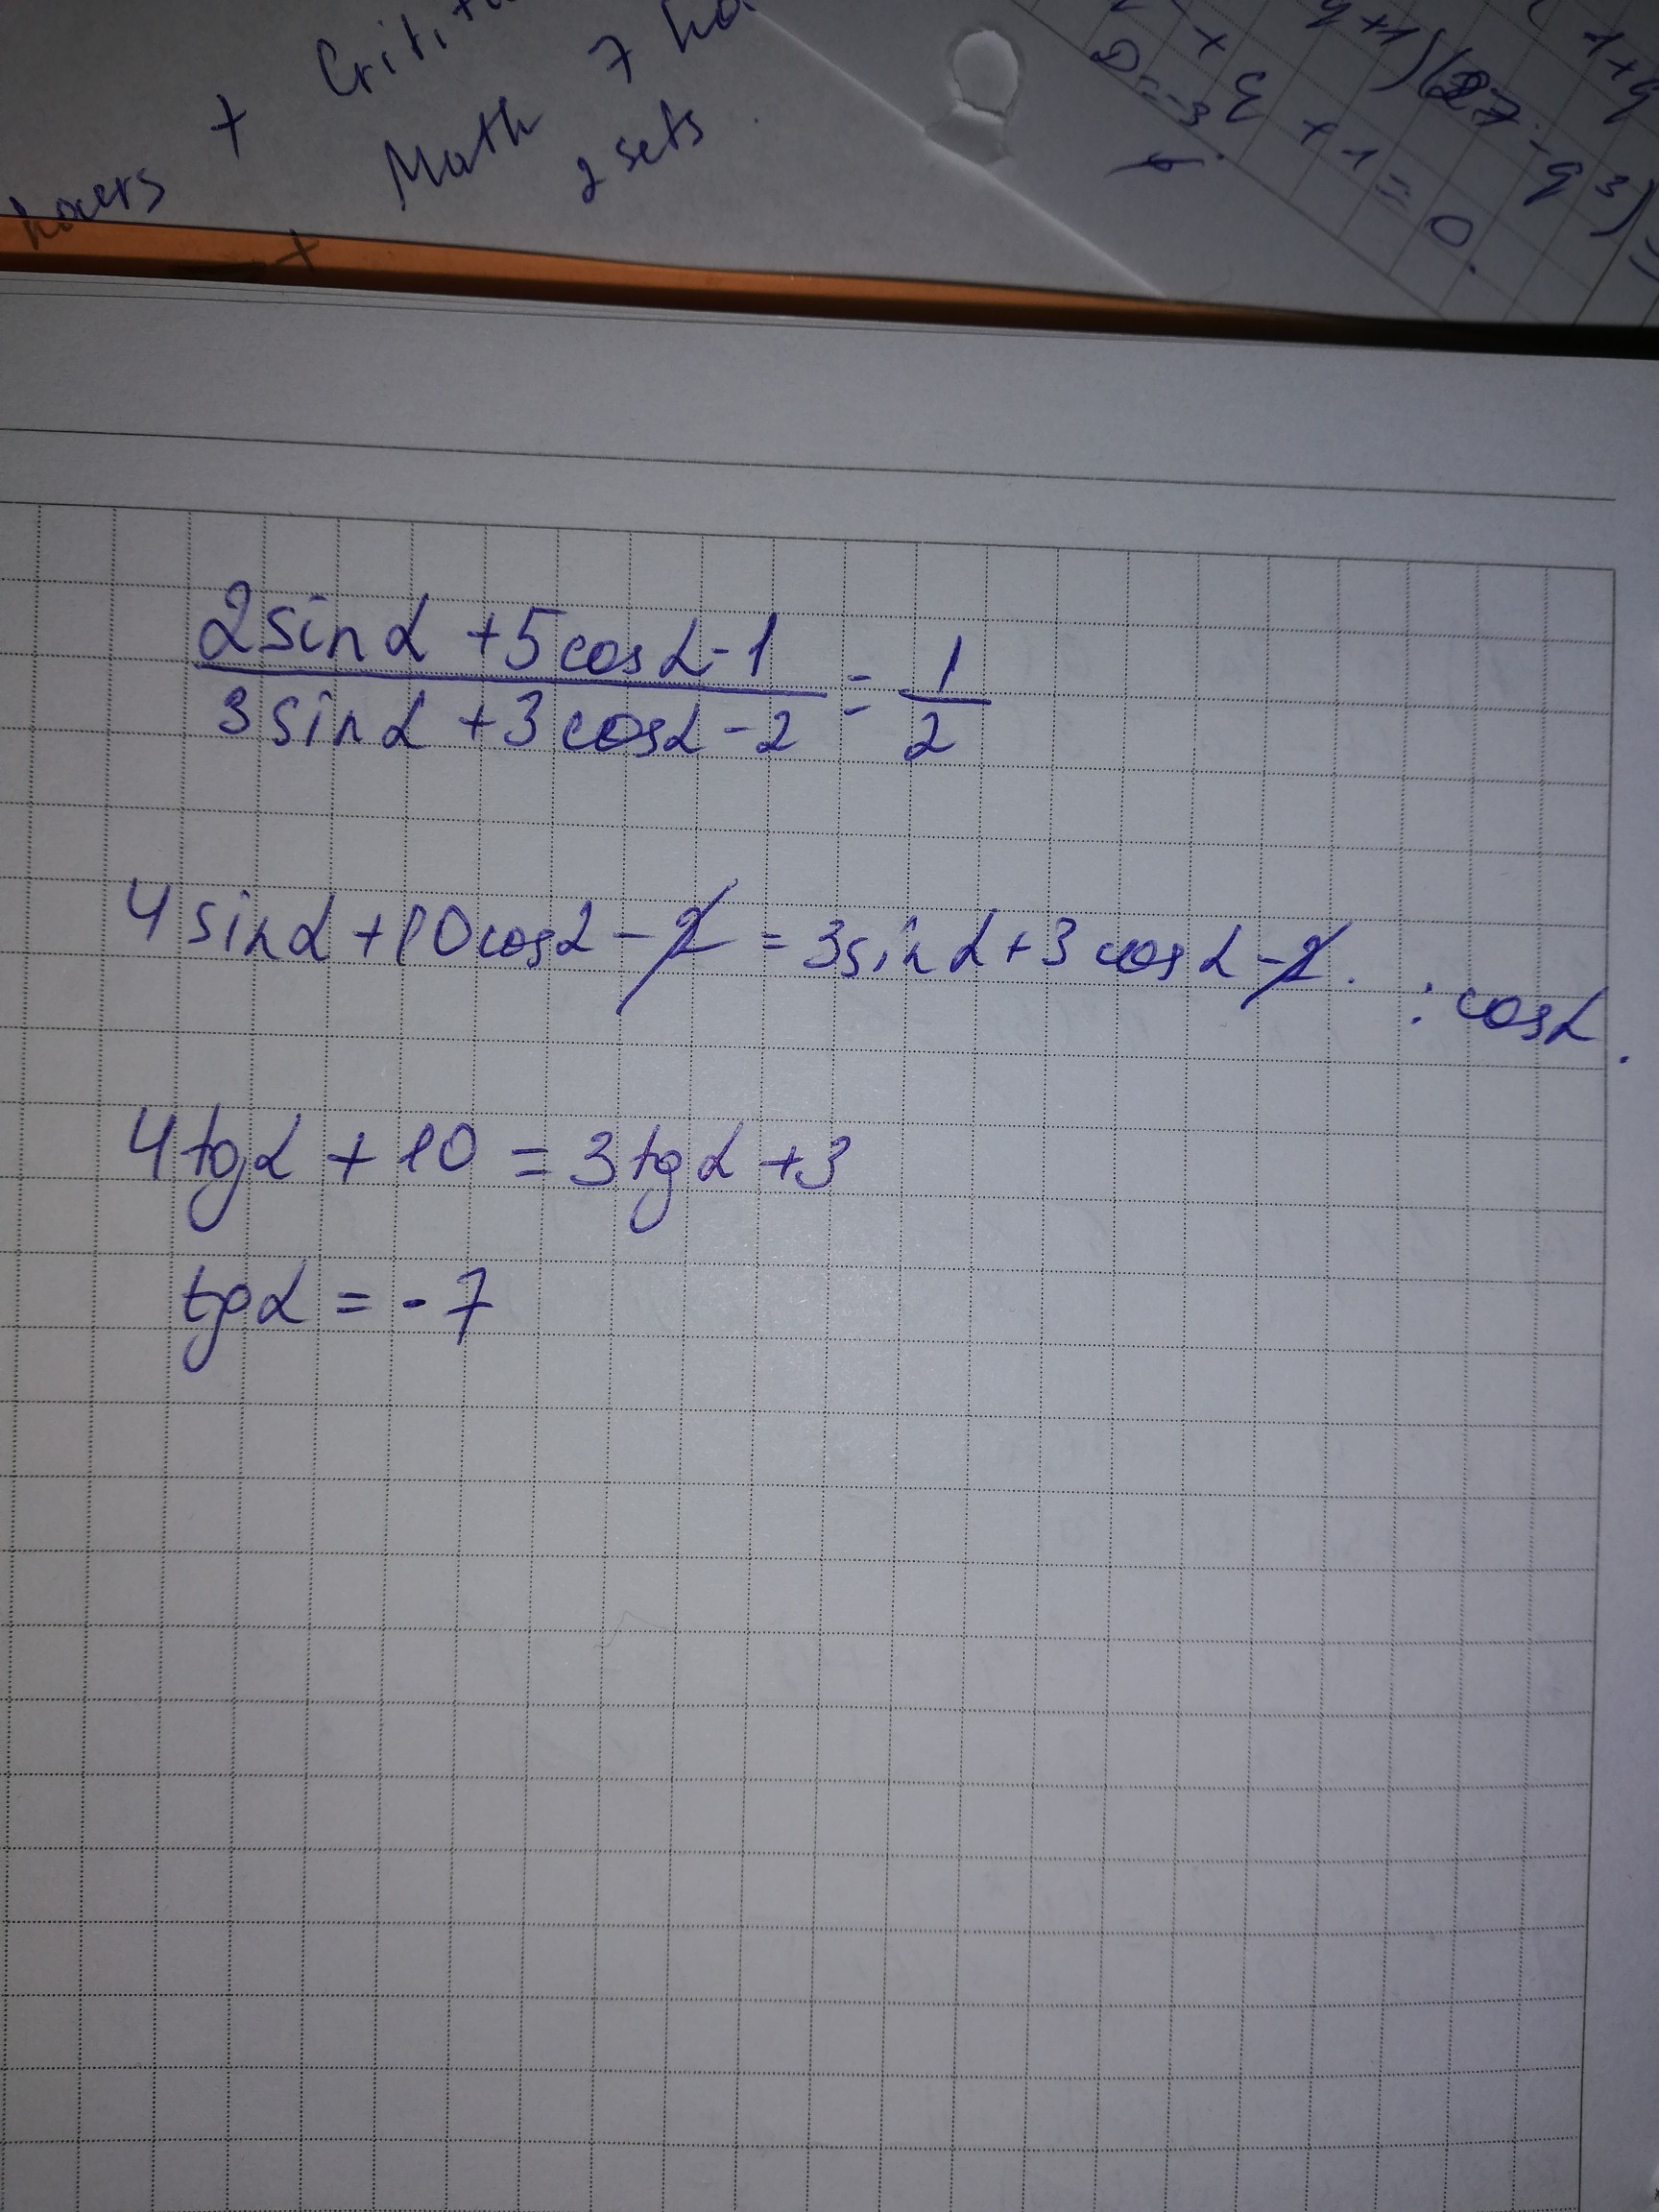 hours + Crit
Math 7
2 sets
+
q+1)(27-q³)
1+q
+ q + 1 = 0.
D=-3
(2sinα + 5cosα - 1)/(3sinα + 3cosα - 2) = 1/2
4sinα + 10cosα - 2 = 3sinα + 3cosα - 2. : cosα.
4tgα + 10 = 3tgα + 3
tgα = -7